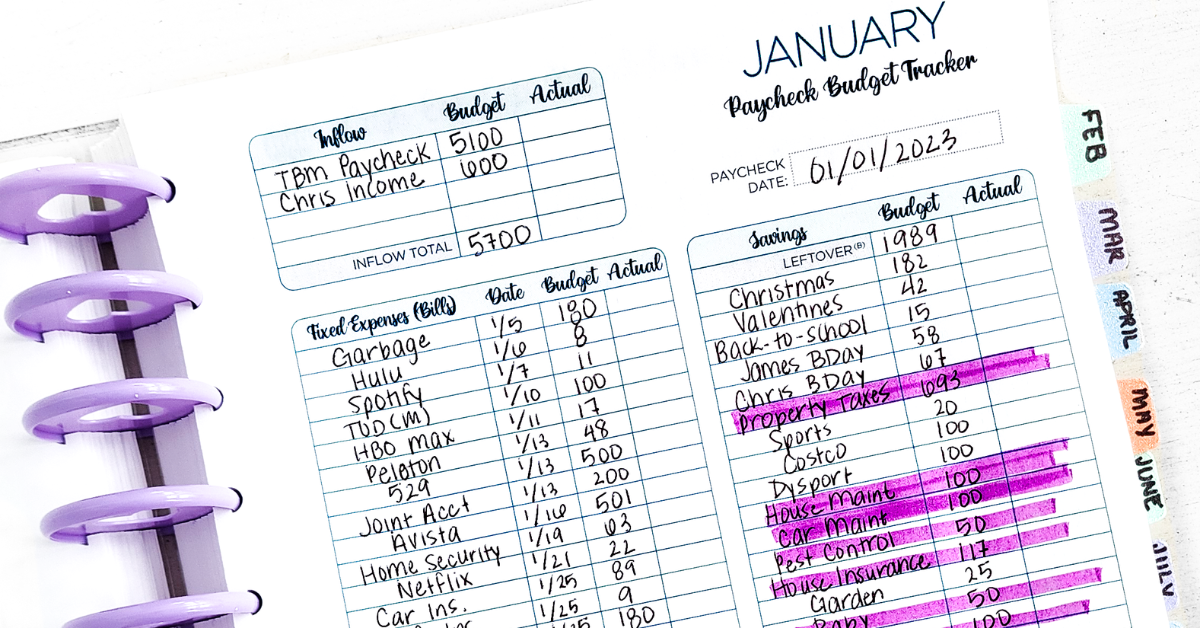 JANUARY
Paycheck Budget Tracker
PAYCHECK DATE: 01/01/2023
Inflow Budget Actual
TBM Paycheck 5100
Chris Income 600
INFLOW TOTAL 5700
Fixed Expenses (Bills) Date Budget Actual
Garbage 1/5 180
Hulu 1/6 8
Spotify 1/7 11
TUD (M) 1/10 100
HBO max 1/11 17
Peloton 1/13 48
529 1/13 500
Joint Acct 1/13 200
Avista 1/16 501
Home Security 1/19 63
Netflix 1/21 22
Car Ins. 1/25 89
1/25 9
180
Savings Budget Actual
LEFTOVER (B) 1989
Christmas 182
Valentines 42
Back-to-School 15
James BDay 58
Chris BDay 67
Property Taxes 693
Sports 20
Costco 100
Dysport 100
House Maint 100
Car Maint 100
Pest Control 50
House Insurance 117
Garden 25
Baby 50
100
FEB
MAR
APRIL
MAY
JUNE
JULY